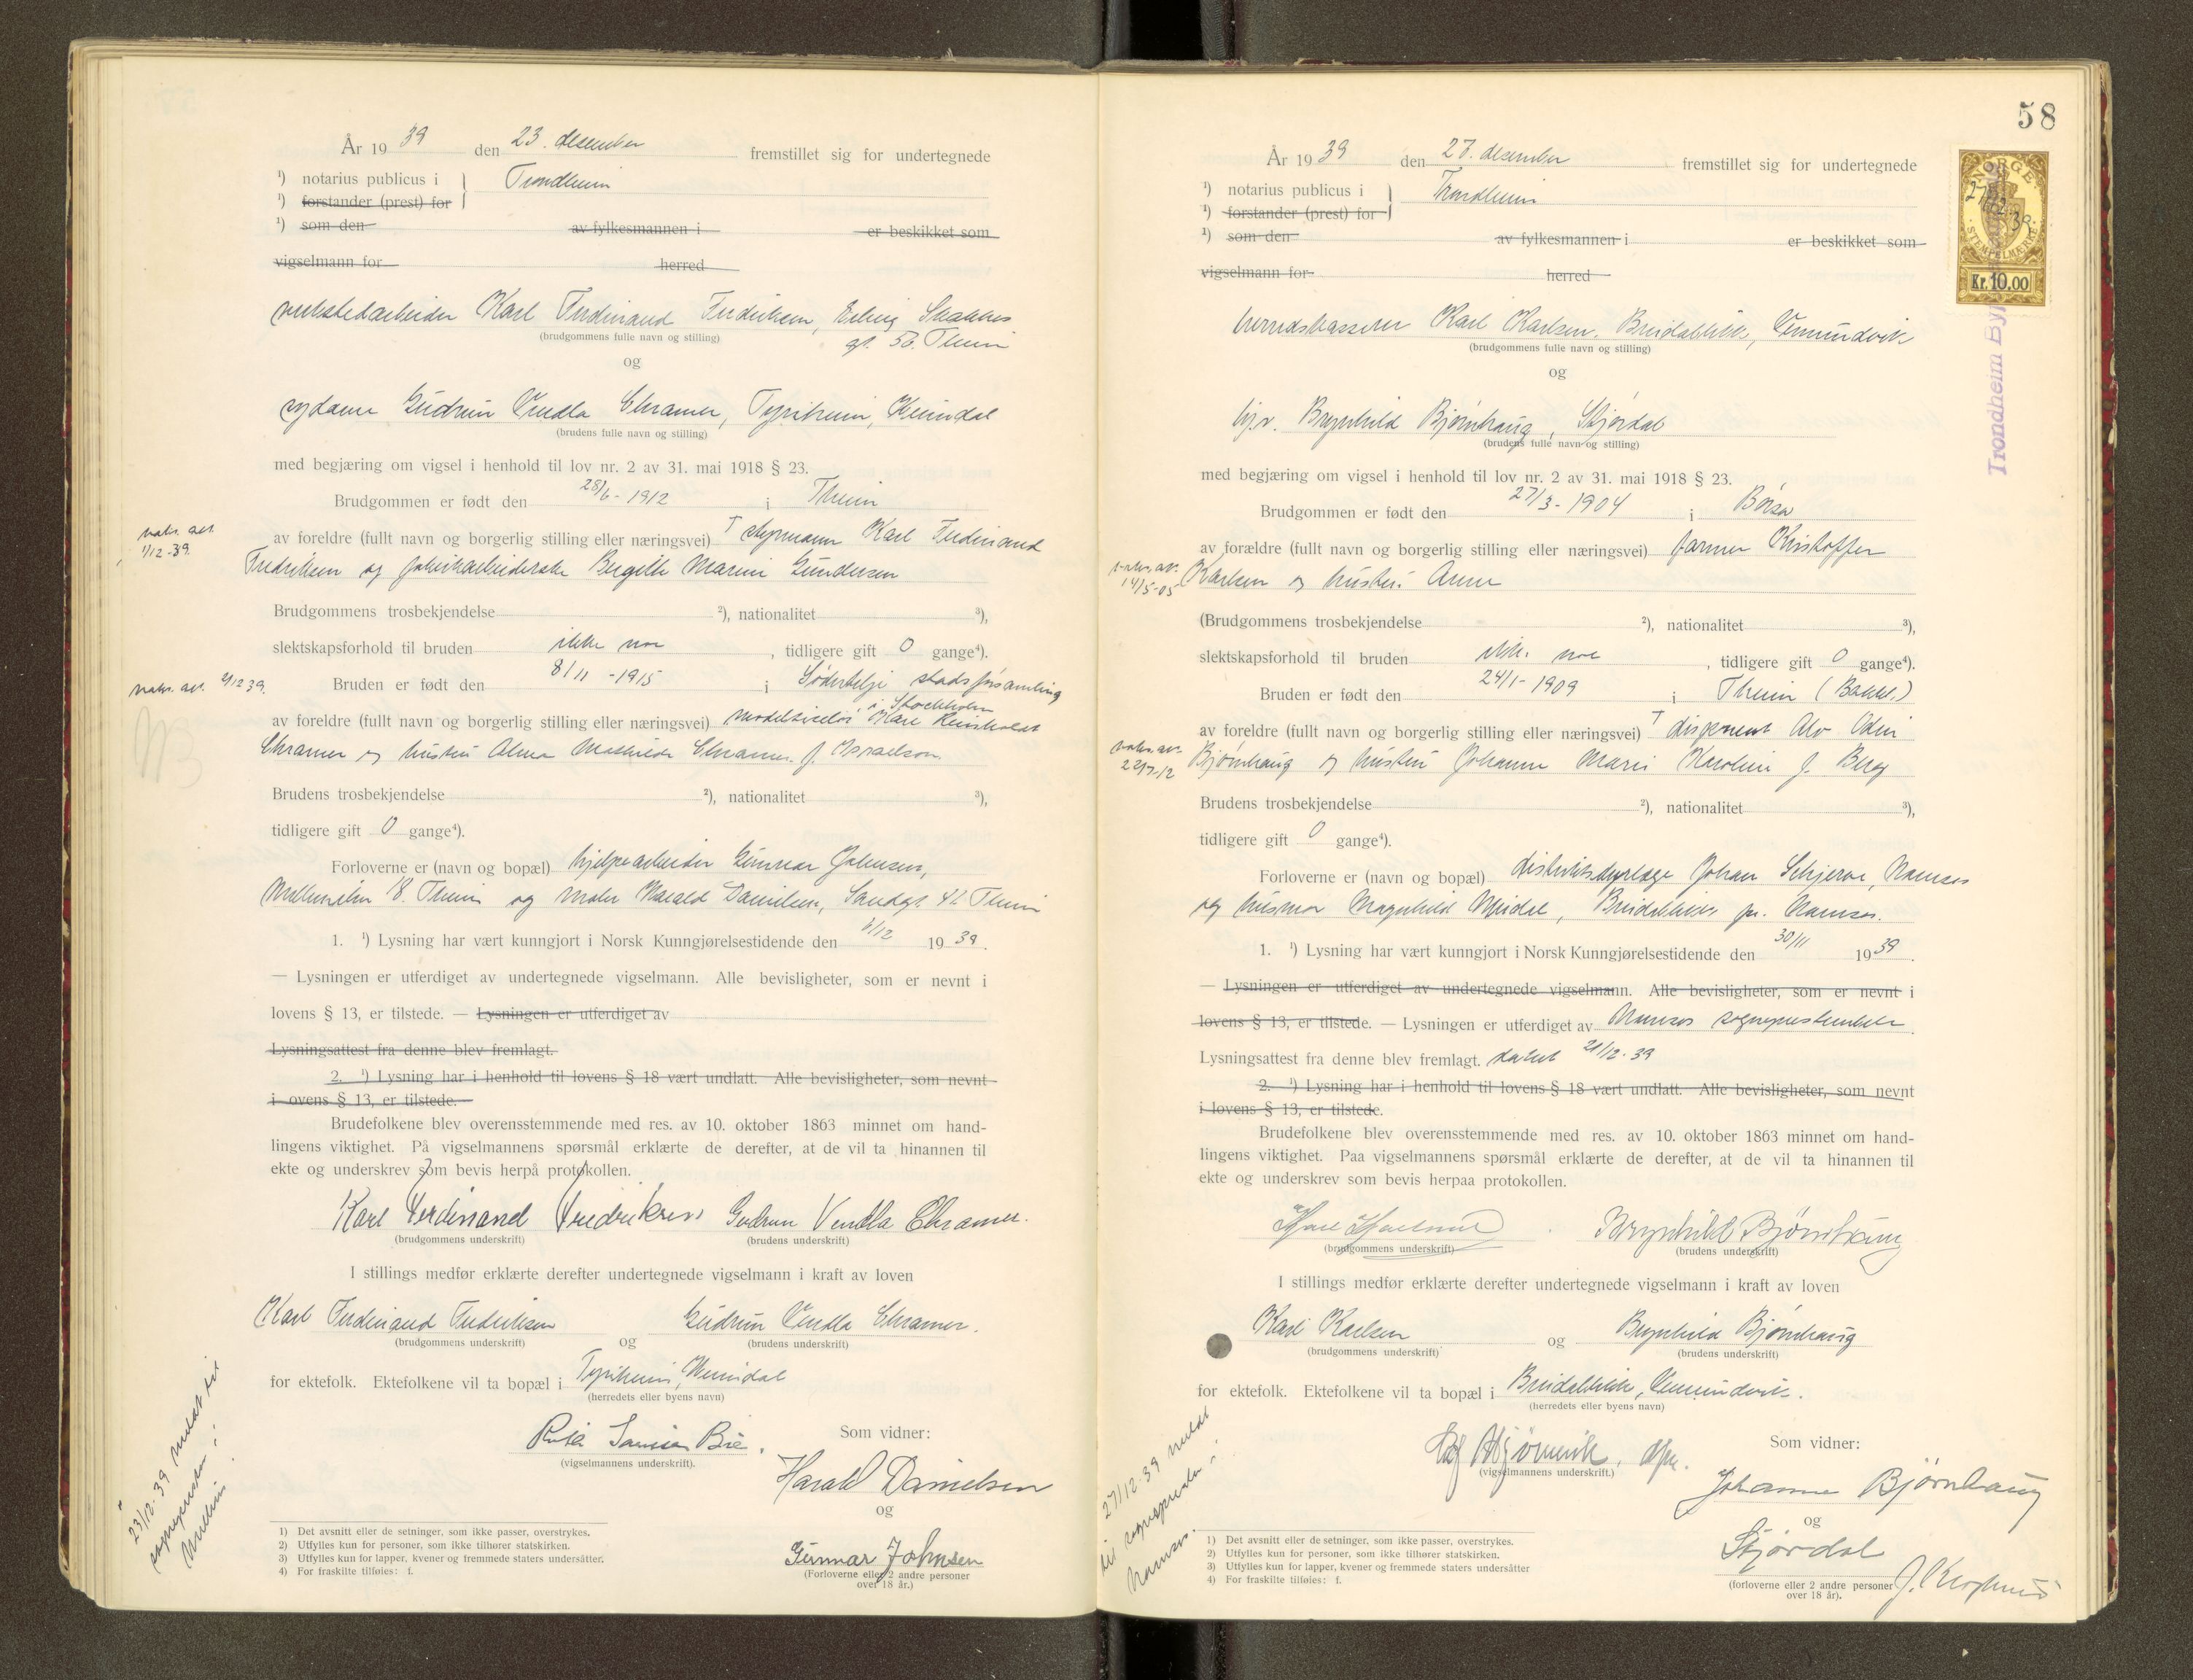 År 19 39 den 23. desember fremstillet sig for undertegnede
1) notarius publicus i Trondheim
1) forstander (prest) for
1) som den av fylkesmannen i er beskikket som
vigselmann for herred
verkstedarbeider Karl Ferdinand Fredriksen, Erling Skakkes
(brudgommens fulle navn og stilling)
gt. 56. Trheim
og
sydame Gudrun Vendla Chramer, Tyriheim, Heimdal
(brudens fulle navn og stilling)
med begjæring om vigsel i henhold til lov nr. 2 av 31. mai 1918 § 23.
Brudgommen er født den 28/6 - 1912 i Trheim
av foreldre (fullt navn og borgerlig stilling eller næringsvei) † styrmann Karl Ferdinand
Fredriksen og fabrikarbeiderske Bergitte Marini Gundersen
vaks. att.
1/12-39.
Brudgommens trosbekjendelse 2), nationalitet 3),
slektskapsforhold til bruden ikke noe , tidligere gift 0 gange4).
Bruden er født den 8/11 - 1915 i Södertelje stadsförsamling
Stockholm
vaks. att. 2/12 39.
av foreldre (fullt navn og borgerlig stilling eller næringsvei) Karl
Chramer og hustru Alma Mathilde Chramer f. Israelson
Brudens trosbekjendelse 2), nationalitet 3),
tidligere gift 0 gange4).
Forloverne er (navn og bopæl) hjelpearbeider Gunnar Johnsen,
Møllenberg 18. Trheim og maler Harald Danielsen, Sandgt. 42 Trheim
1. 1) Lysning har vært kunngjort i Norsk Kunngjørelsestidende den 6/12 19 39.
— Lysningen er utferdiget av undertegnede vigselmann. Alle bevisligheter, som er nevnt i
lovens § 13, er tilstede. — Lysningen er utferdiget av
Lysningsattest fra denne blev fremlagt.
2. 1) Lysning har i henhold til lovens § 18 vært undlatt. Alle bevisligheter, som nevnt
i ovens § 13, er tilstede.
Brudefolkene blev overensstemmende med res. av 10. oktober 1863 minnet om hand-
lingens viktighet. På vigselmannens spørsmål erklærte de derefter, at de vil ta hinannen til
ekte og underskrev som bevis herpå protokollen.
Karl Ferdinand Fredriksen Gudrun Vendla Chramer.
(brudgommens underskrift) (brudens underskrift)
I stillings medfør erklærte derefter undertegnede vigselmann i kraft av loven
Karl Ferdinand Fredriksen og Gudrun Vendla Chramer.
(brudgommens underskrift) (brudens underskrift)
for ektefolk. Ektefolkene vil ta bopæl i Tyriheim, Heimdal
(herredets eller byens navn)
(vigselmannens underskrift).
Som vidner:
Harald Danielsen
og
Gunnar Johnsen
(Forloverne eller 2 andre personer
over 18 år.)
23/12-39 meldt til
sognepresten i
1) Det avsnitt eller de setninger, som ikke passer, overstrykes.
2) Utfylles kun for personer, som ikke tilhører statskirken.
3) Utfylles kun for lapper, kvener og fremmede staters undersåtter.
4) For fraskilte tilføies: f.
58
NORGE
27/12.39.
STEMPELMERKE
Kr. 10.00
Trondheim By
År 19 39 den 27. desember fremstillet sig for undertegnede
1) notarius publicus i Trondheim
1) forstander (prest) for
1) som den av fylkesmannen i er beskikket som
vigselmann for herred
herredskasserer Karl Karlsen, Breidablikk, Vemundvik
(brudgommens fulle navn og stilling)
og
Brynhild Bjørnhaug, Stjørdal
(brudens fulle navn og stilling)
med begjæring om vigsel i henhold til lov nr. 2 av 31. mai 1918 § 23.
Brudgommen er født den 27/3 - 1904 i Børsa
av forældre (fullt navn og borgerlig stilling eller næringsvei) farmer Kristoffer
Karlsen og hustru Anne
vaks. att.
14/5-05
(Brudgommens trosbekjendelse 2), nationalitet 3),
slektskapsforhold til bruden ikke noe , tidligere gift 0 gange4).
Bruden er født den 24/1 - 1909 i Trheim (Bakkl.)
av foreldre (fullt navn og borgerlig stilling eller næringsvei) † disponent Alv Odin
Bjørnhaug og hustru Johanne Marie Karoline f. Berg
vaks. att.
Brudens trosbekjendelse 2), nationalitet 3),
tidligere gift 0 gange4).
Forloverne er (navn og bopæl) distriktsdyrlæge Johan Schjerve, Namsos
og husmor Magnhild Meidal, Breidablikk pr. Namsos.
1. 1) Lysning har vært kunngjort i Norsk Kunngjørelsestidende den 30/11 19 39.
— Lysningen er utferdiget av undertegnede vigselmann. Alle bevisligheter, som er nevnt i
lovens § 13, er tilstede. — Lysningen er utferdiget av Namsos sogneprestembete.
Lysningsattest fra denne blev fremlagt. datert 21/12-39
2. 1) Lysning har i henhold til lovens § 18 vært undlatt. Alle bevisligheter, som nevnt
i lovens § 13, er tilstede.
Brudefolkene blev overensstemmende med res. av 10. oktober 1863 minnet om hand-
lingens viktighet. Paa vigselmannens spørsmål erklærte de derefter, at de vil ta hinannen til
ekte og underskrev som bevis herpaa protokollen.
Karl Karlsen Brynhild Bjørnhaug
(brudgommens underskrift) (brudens underskrift)
I stillings medfør erklærte derefter undertegnede vigselmann i kraft av loven
Karl Karlsen og Brynhild Bjørnhaug
(brudgommens underskrift) (brudens underskrift)
for ektefolk. Ektefolkene vil ta bopæl i Breidablikk, Vemundvik.
(herredets eller byens navn)
(vigselmannens underskrift.)
Som vidner:
Johanne Bjørnhaug
og
Stjørdal
(forloverne eller 2 andre personer
over 18 år).
27/12-39 meldt
til sognepresten i
Namsos.
1) Det avsnitt eller de setninger, som ikke passer, overstrykes.
2) Utfylles kun for personer, som ikke tilhører statskirken.
3) Utfylles kun for lapper, kvener og fremmede staters undersåtter
4) For fraskilte tilføies: f.